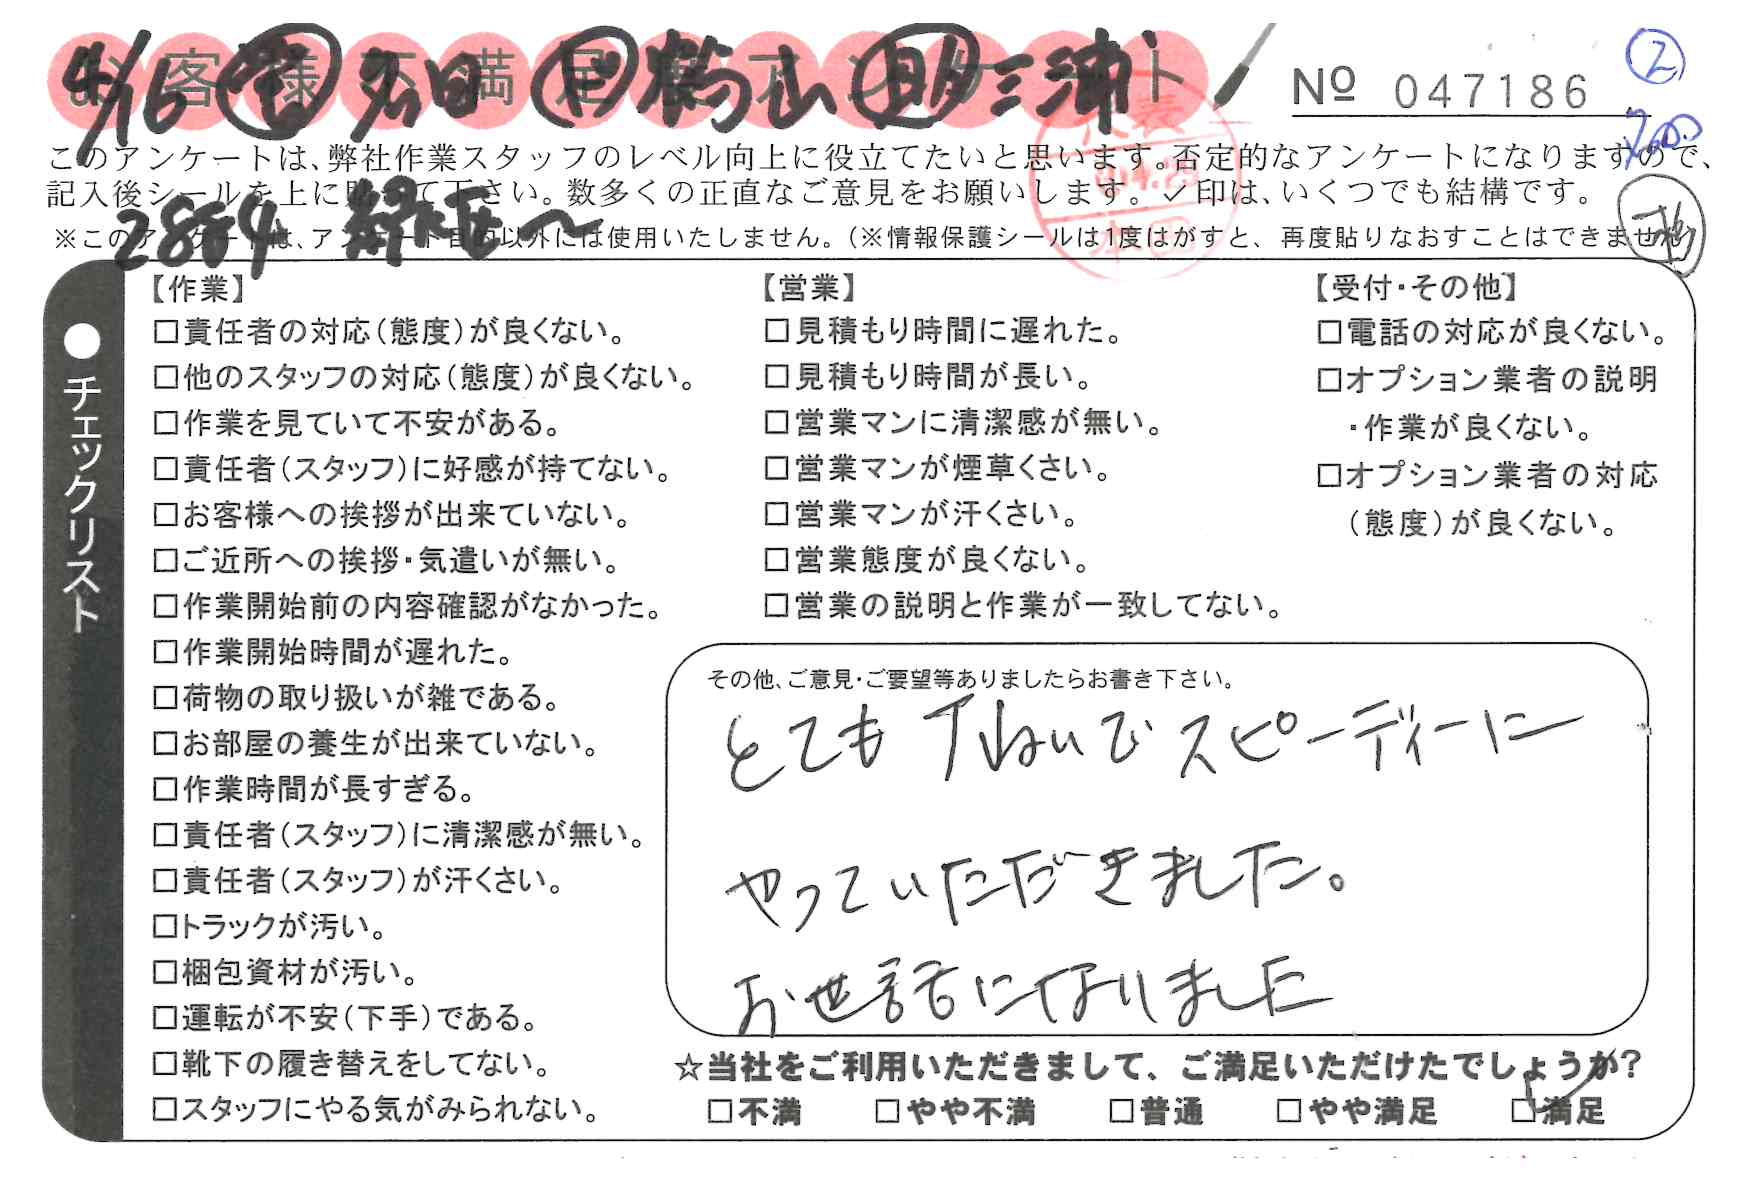 お客様不満足度アンケート
4/16 営 石田 ド 橋山 助 三浦
№ 047186
②
700
このアンケートは、弊社作業スタッフのレベル向上に役立てたいと思います。否定的なアンケートになりますので、
記入後シールを上に貼って下さい。数多くの正直なご意見をお願いします。✓印は、いくつでも結構です。
2884
※このアンケートは、アンケート目的以外には使用いたしません。(※情報保護シールは1度はがすと、再度貼りなおすことはできません
●チェックリスト
【作業】
□責任者の対応(態度)が良くない。
□他のスタッフの対応(態度)が良くない。
□作業を見ていて不安がある。
□責任者(スタッフ)に好感が持てない。
□お客様への挨拶が出来ていない。
□ご近所への挨拶・気遣いが無い。
□作業開始前の内容確認がなかった。
□作業開始時間が遅れた。
□荷物の取り扱いが雑である。
□お部屋の養生が出来ていない。
□作業時間が長すぎる。
□責任者(スタッフ)に清潔感が無い。
□責任者(スタッフ)が汗くさい。
□トラックが汚い。
□梱包資材が汚い。
□運転が不安(下手)である。
□靴下の履き替えをしてない。
□スタッフにやる気がみられない。
【営業】
□見積もり時間に遅れた。
□見積もり時間が長い。
□営業マンに清潔感が無い。
□営業マンが煙草くさい。
□営業マンが汗くさい。
□営業態度が良くない。
□営業の説明と作業が一致してない。
【受付・その他】
□電話の対応が良くない。
□オプション業者の説明
・作業が良くない。
□オプション業者の対応
(態度)が良くない。
その他、ご意見・ご要望等ありましたらお書き下さい。
とても丁ねいでスピーディーに
やっていただきました。
お世話になりました
☆当社をご利用いただきまして、ご満足いただけたでしょうか?
□不満 □やや不満 □普通 □やや満足 ☑満足